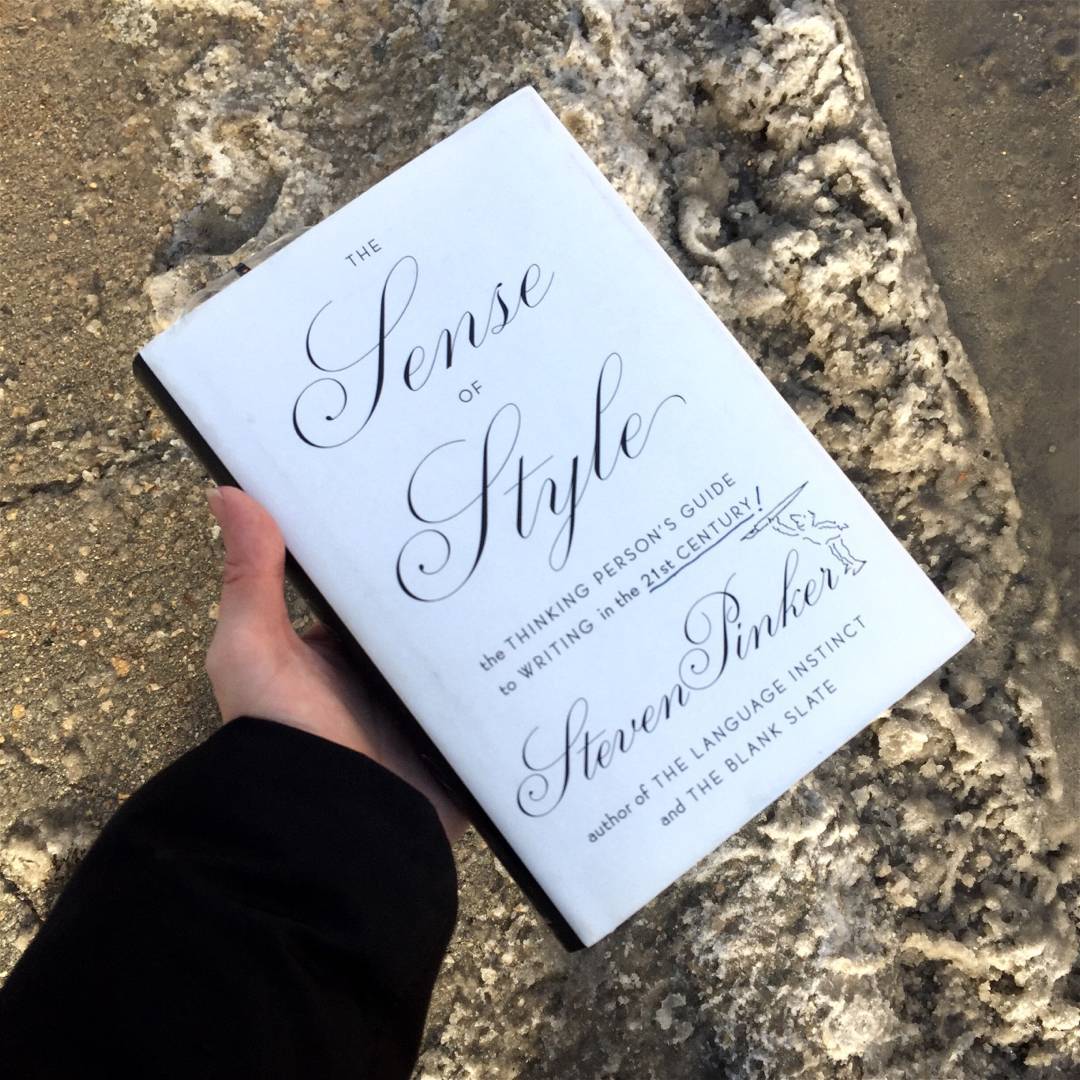 THE
Sense
OF
Style
the THINKING PERSON'S GUIDE
to WRITING in the 21st CENTURY!
Steven Pinker
author of THE LANGUAGE INSTINCT
and THE BLANK SLATE